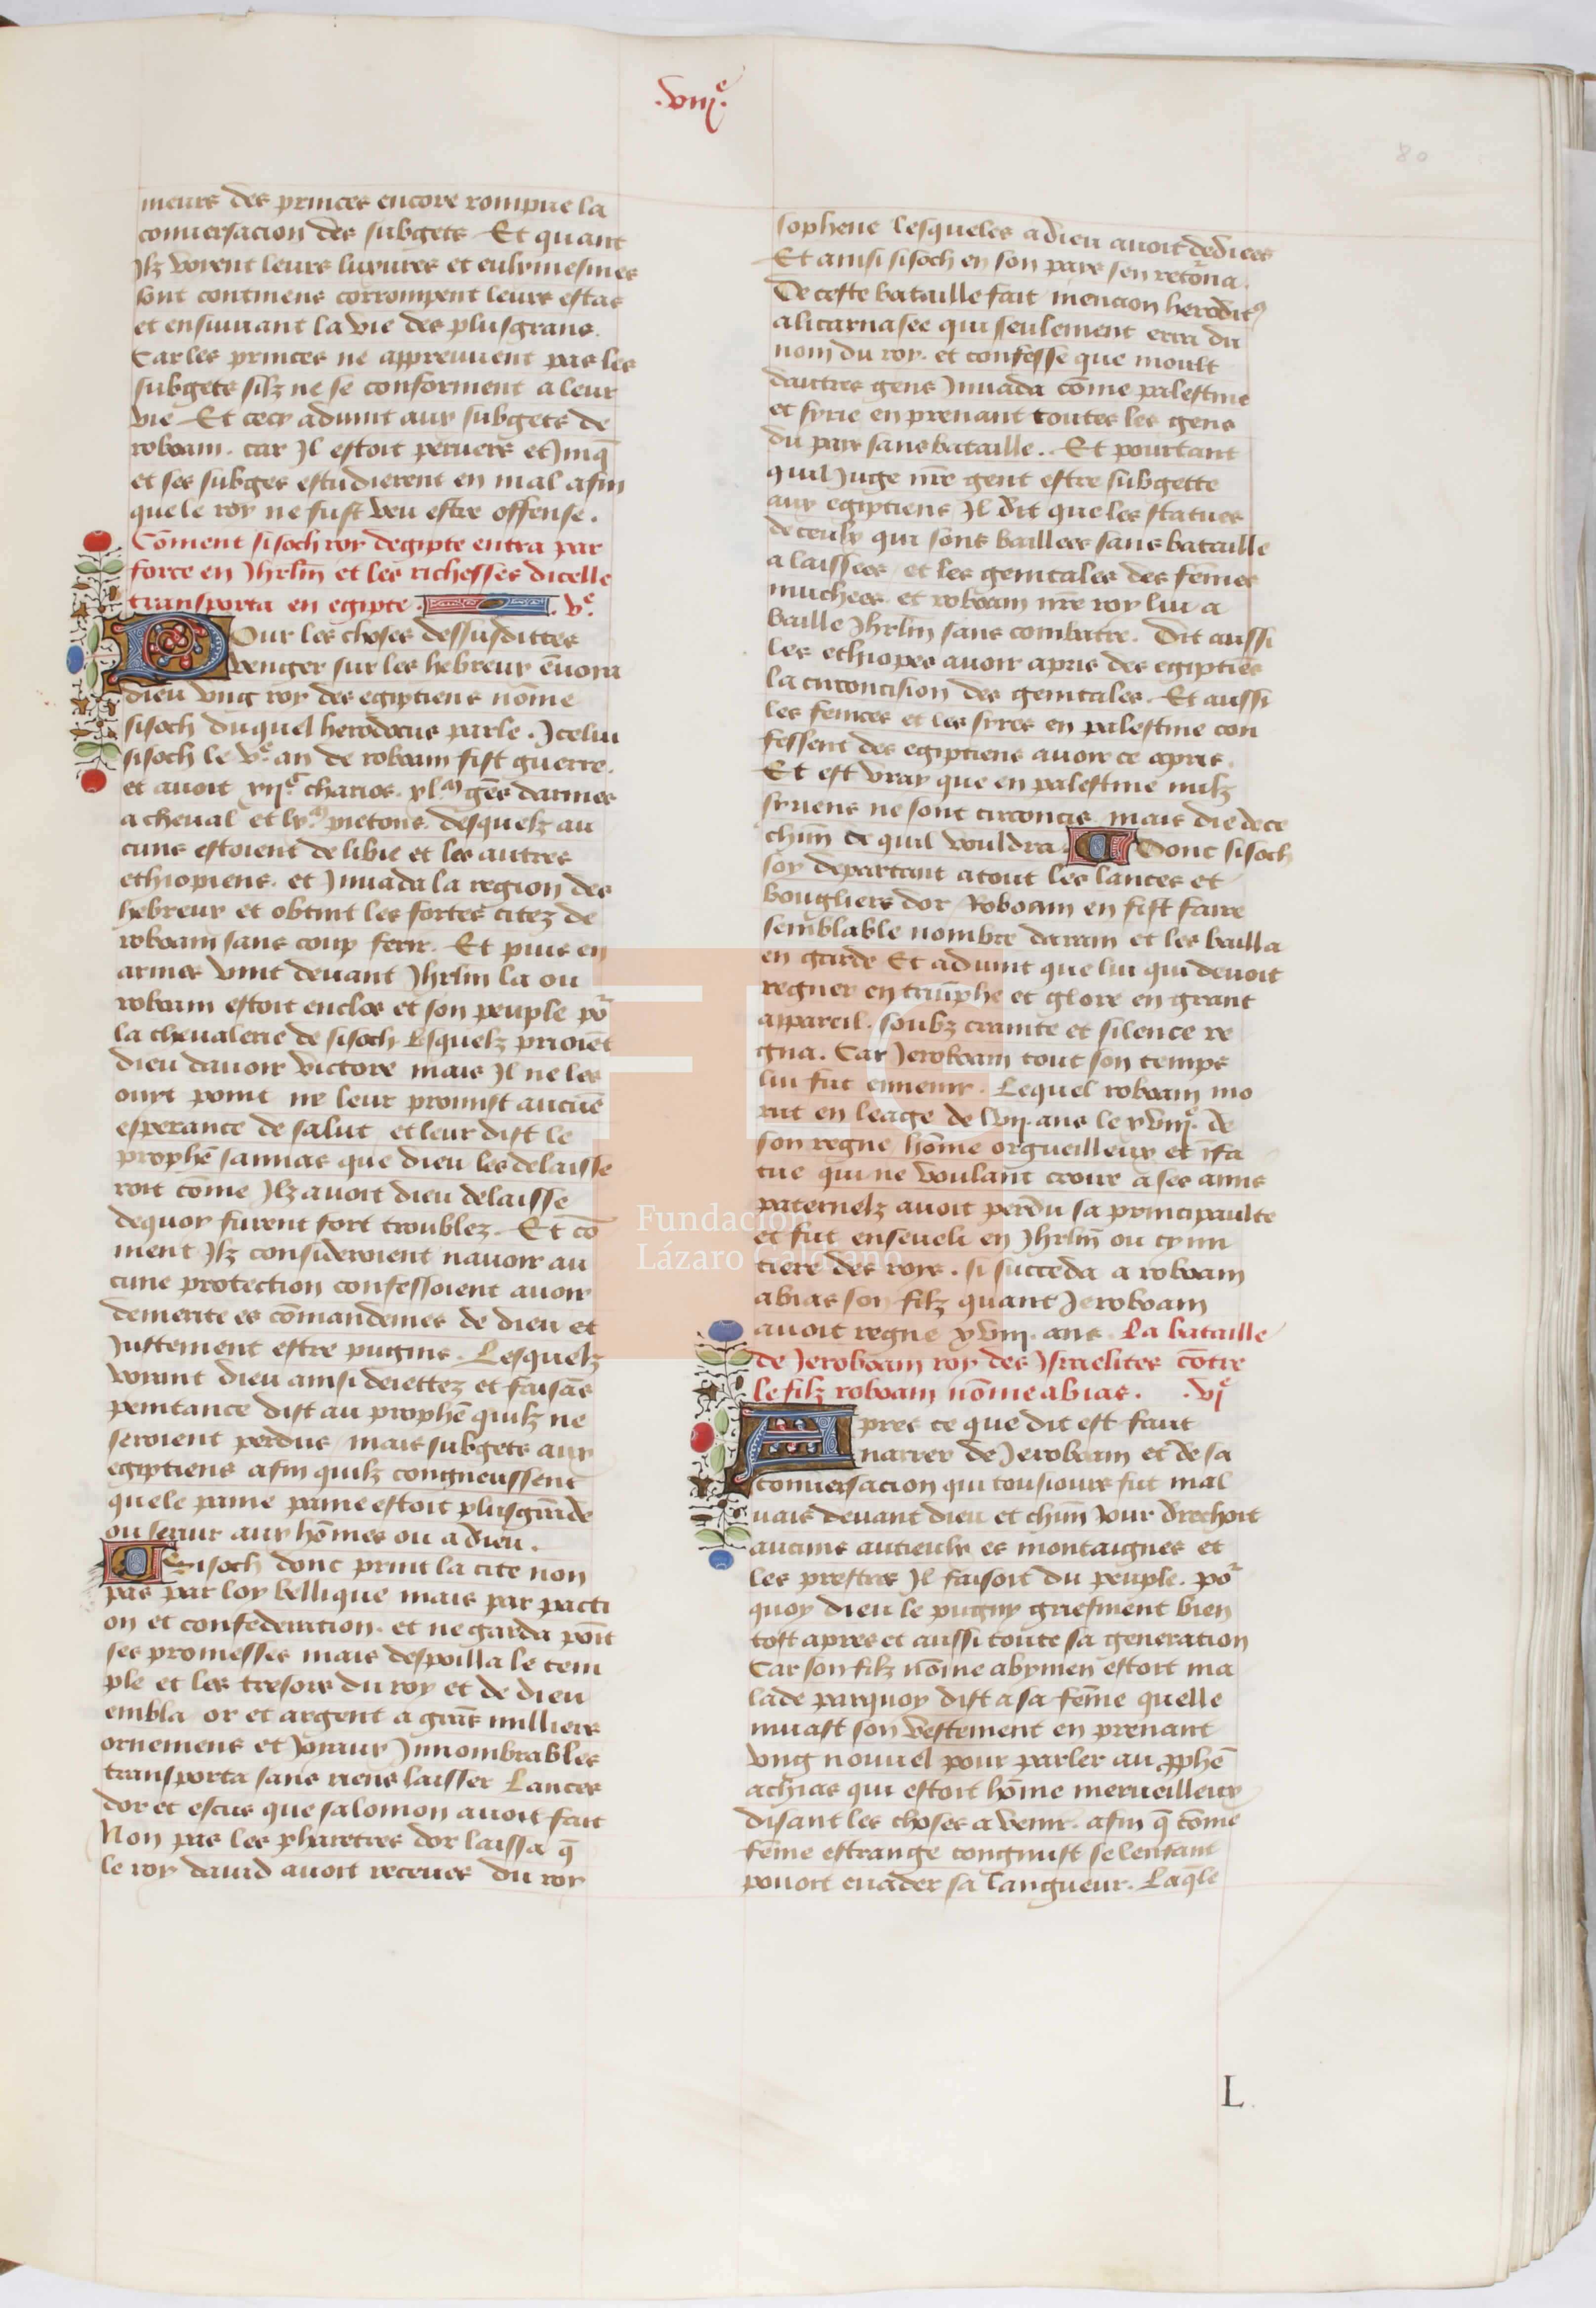 .viii.e
80
meurs des princes encore rompue la
conuersacion des subgets Et quant
Jlz voient leurs luxures et eulxmesmes
sont continens corrompent leurs estas
et ensuiuant la vie des plusgrans.
Car les princes ne appreuuent pas les
subgets silz ne se conforment a leur
vie Et cecy aduint aux subgets de
roboam. car Jl estoit peruers et Jniq̄
et ses subges estudierent en mal afin
que le roy ne fust veu estre offense.
Cōment sisoch roy degipte entra par
force en Jhrlm̄ et les richesses dicelle
transporta en egipte. v.e
Pour les choses dessusdittes
venger sur les hebreux ēuoia
dieu vng roy des egiptiens nōme
sisoch duquel herodocus parle. Jcelui
sisoch le v.e an de roboam fist guerre.
et auoit xii.c charios. xl.m gēs darmes
a cheual et lx.m pietons. desquelz au
cuns estoient de libie et les autres
ethiopiens. et Jnuada la region des
hebreux et obtint les fortes citez de
roboam sans coup ferir. Et puis en
armes vint deuant Jhrlm la ou
roboam estoit enclos et son peuple po᷑
la cheualerie de sisoch Lesquelz prioiēt
dieu dauoir victore mais Jl ne les
ouyt point ne leur promist aucūe
esperance de salut et leur dist le
prophē samias que dieu les delaisse
roit cōme Jlz auoit dieu delaisse
dequoy furent fort troublez. Et cō
ment Jlz consideroient nauoir au
cune protection confessoient auoir
demerite es cōmandemēs de dieu et
Justement estre pugnis. Lesquelz
voiant dieu ainsi deiettez et faisās
penitance dist au prophē quilz ne
seroient perdus mais subgets aux
egiptiens afin quilz congneussent
quele paine paine estoit plusgrāde
ou seruir aux hōmes ou a dieu.
Sisoch donc print la cite non
pas par loy bellique mais par pacti
on et confederation. et ne garda poīt
ses promesses mais despoilla le tem
ple et les tresors du roy et de dieu
embla or et argent a grās milliers
ornemens et Joyaux Jnnombrables
transporta sans riens laisser Lances
dor et escus que salomon auoit fait
Non pas les pharetres dor laissa q̄
le roy dauid auoit receues du roy
sophene lesqueles a dieu auoit dediees
Et ainsi sisoch en son pays sen reto᷑na.
De ceste bataille fait mencion herodit9
alicarnasee qui seulement erra du
nom du roy. et confesse que moult
dautres gens Jnuada cōme palestine
et syrie en prenant toutes les gens
du pays sans bataille.. Et pourtant
quil Juge nr̄e gent estre subgette
aux egiptiens Jl dit que les statues
de ceulx qui sons baillees sans bataille
a laissees et les genitales des fēmes
muchees. et roboam nr̄e roy lui a
baille Jhrlm̄ sans combatre. Dit aussi
les ethiopes auoir apris des egiptiēs
la circoncision des genitales. Et aussi
les fenices et les syres en palestine con
fessent des egiptiens auoir ce apris.
Et est vray que en palestine nulz
syriens ne sont circoncis. mais die de ce
chūn ce quil vouldra. Donc sisoch
soy departant atout les lances et
bougliers dor Roboam en fist faire
semblable nombre darain et les bailla
en garde Et aduint que lui qui deuoit
regner en triūphe et glore en grant
appareil. soubz crainte et silence re
gna. Car Jeroboam tout son temps
lui fut ennemi. Lequel roboam mo
rut en leage de lvii. ans le xviii.e de
son regne hōme orgueilleux et īfa
tue qui ne voulant croire a ses amis
paternelz auoit perdu sa principaulte
et fut enseueli en Jhrlm̄ ou cymi
tiere des roys. si succeda a roboam
abias son filz quant Jeroboam
auoit regne xviii. ans. La bataille
de Jeroboam roy des Jsraelites cōtre
le filz roboam nōme abias. .vi.e
Apres ce que dit est fault
narrer de Jeroboam et de sa
conuersacion qui tousiours fut mal
uais deuant dieu et chūn Jour drechoit
aucuns autieulx es montaignes et
les prestres Jl faisoit du peuple. po᷑
quoy dieu le pugny griefment bien
tost apres et aussi toute sa generation
Car son filz nōme abymen estoit ma
lade parquoy dist a sa fēme quelle
muast son vestement en prenant
vng nouuel pour parler au p̱phē
achias qui estoit hōme merueilleux
disant les choses a venir. afin q̄ cōme
fēme estrange congnust se lenfant
pouoit euader sa langueur. Laq̄le
L.
Fundación
Lázaro Galdiano